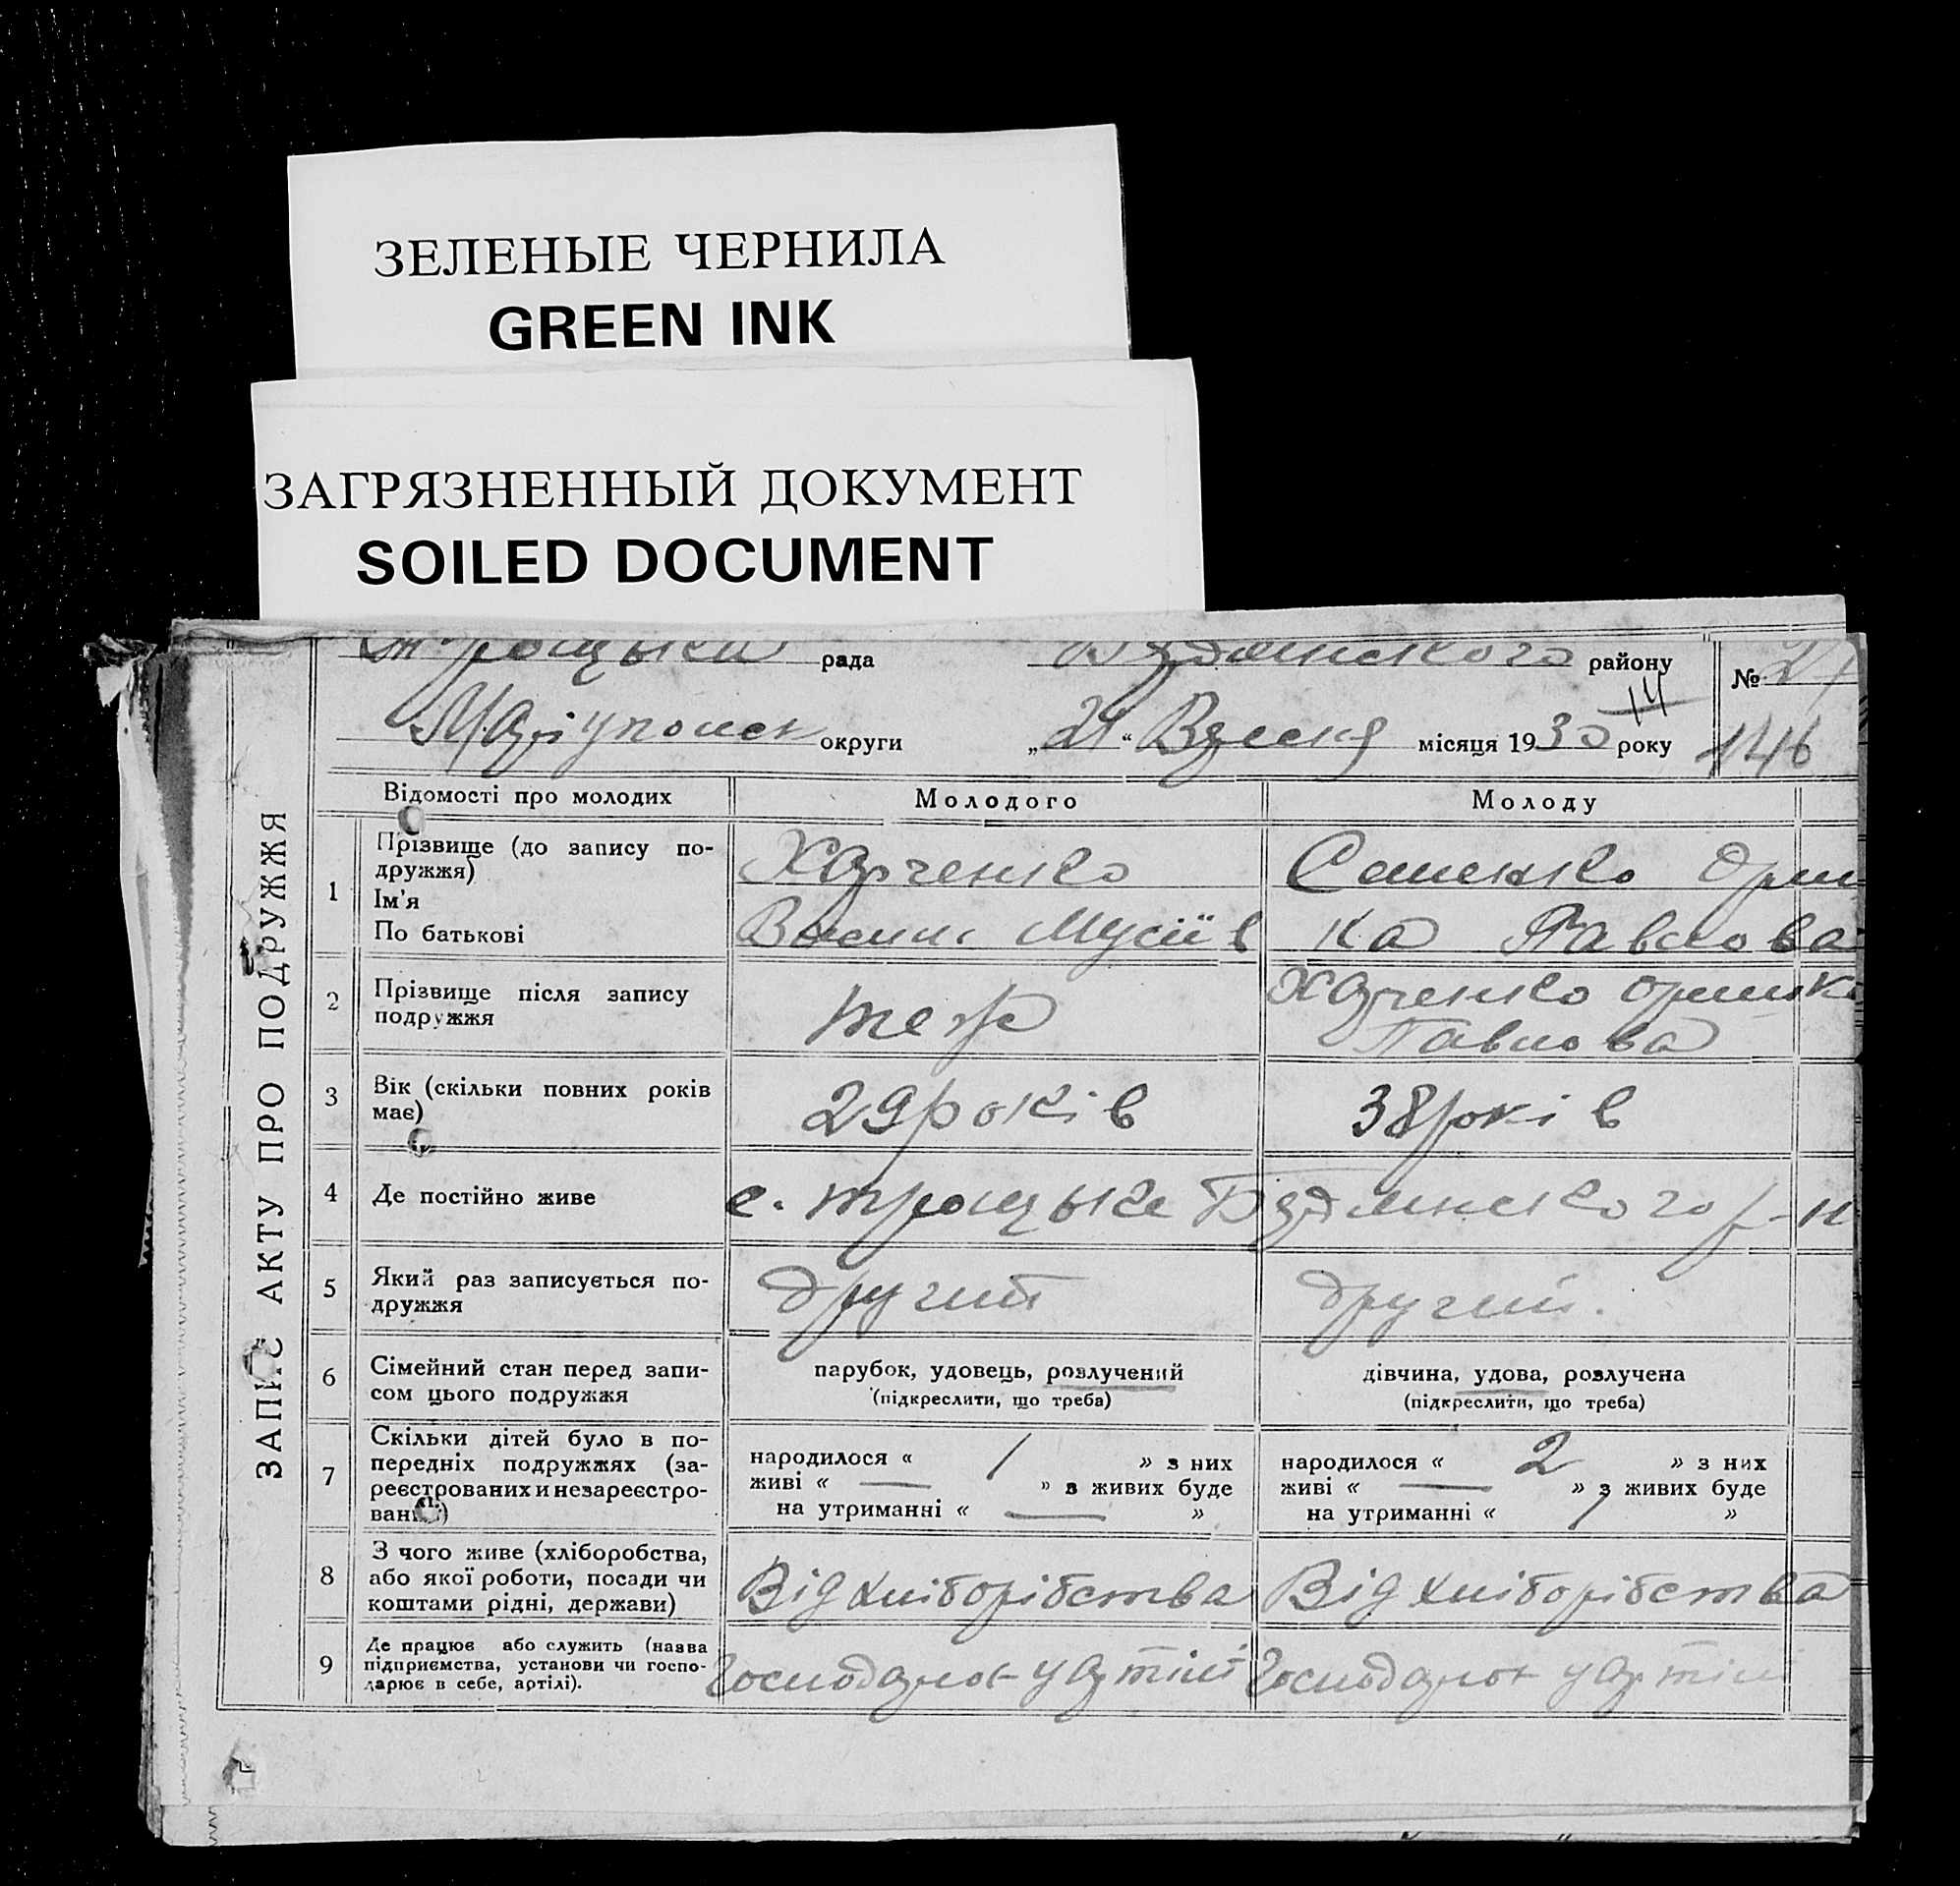 ЗЕЛЕНЫЕ ЧЕРНИЛА
GREEN INK
ЗАГРЯЗНЕННЫЙ ДОКУМЕНТ
SOILED DOCUMENT
рада Будянського району № 21
14
Маріупольск округи „21“ Вересня місяця 1930 року 146
ЗАПИС АКТУ ПРО ПОДРУЖЖЯ
Відомості про молодих Молодого Молоду
1 Прізвище (до запису по-
дружжя)
Ім'я
По батькові
Харченко
Василь Мусіїв
Саленко Орин
ка Павлова
2 Прізвище після запису
подружжя
теж
Харченко Оринка
Павлова
3 Вік (скільки повних років
має)
29 років
38 років
4 Де постійно живе
с. Троцьке Будянського р-н
5 Який раз записується по-
дружжя
другий
другий.
6 Сімейний стан перед запи-
сом цього подружжя
парубок, удовець, розлучений
(підкреслити, що треба)
дівчина, удова, розлучена
(підкреслити, що треба)
7 Скільки дітей було в по-
передніх подружжях (за-
реєстрованих и незареєстро-
ваних)
народилося « 1 » з них
живі « — » з живих буде
на утриманні « — »
народилося « 2 » з них
живі « — » з живих буде
на утриманні « 1 »
8 З чого живе (хліборобства,
або якої роботи, посади чи
коштами рідні, держави)
Від хліборібства
Від хліборібства
9 Де працює або служить (назва
підприємства, установи чи госпо-
дарює в себе, артілі).
Господарює у артілі
Господарює у артілі